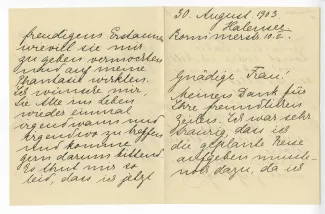 30. August. 1903
Halensee
Bornimerstr. 10. I.
Gnädige Frau!
meinen Dank für
Ihre freundlichen
Zeilen. Es war sehr
traurig, dass ich
die geplante Reise
aufgeben musste
noch dazu, da ich
freudigem Erstaunen
wieviel sie mir
zu geben vermochten
und auf meine
Phantasie wirkten.
Ich wünsche mir,
Sie Alle im Leben
wieder einmal
irgendwann und
irgendwo zu treffen
und komme
gern darum bittend
Es thut mir so
leid, dass ich jetzt